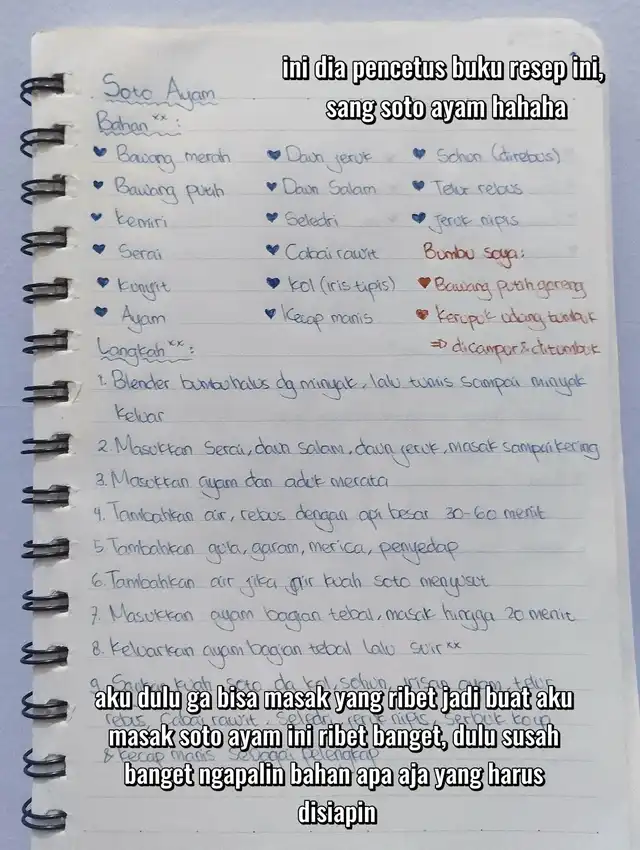 ini dia pencetus buku resep ini,
sang soto ayam hahaha
Soto Ayam
Bahan xx :
Bawang merah
Bawang putih
Kemiri
Serai
Kunyit
Ayam
Daun jeruk
Daun Salam
Seledri
Cabai rawit
Kol (iris tipis)
Kecap manis
Sohun (direbus)
Telur rebus
Jeruk nipis
Bumbu soya:
Bawang putih goreng
Kerupuk udang tumbuk
⇒ dicampur & ditumbuk
Langkah xx :
1. Blender bumbu halus dg minyak, lalu tumis sampai minyak
keluar
2. Masukkan Serai, daun salam, daun jeruk, masak sampai kering
3. Masukkan ayam dan aduk merata
4. Tambahkan air, rebus dengan api besar 30-60 menit
5. Tambahkan gula, garam, merica, penyedap
6. Tambahkan air jika air kuah soto menyusut
7. Masukkan ayam bagian tebal, masak hingga 20 menit
8. Keluarkan ayam bagian tebal lalu suir xx
9. Sajikan kuah soto dg kol, sohun, irisan ayam, telur
rebus, Cabai rawit, Seledri, jeruk nipis, Serbuk koya
& kecap manis sebagai pelengkap
aku dulu ga bisa masak yang ribet jadi buat aku
masak soto ayam ini ribet banget, dulu susah
banget ngapalin bahan apa aja yang harus
disiapin